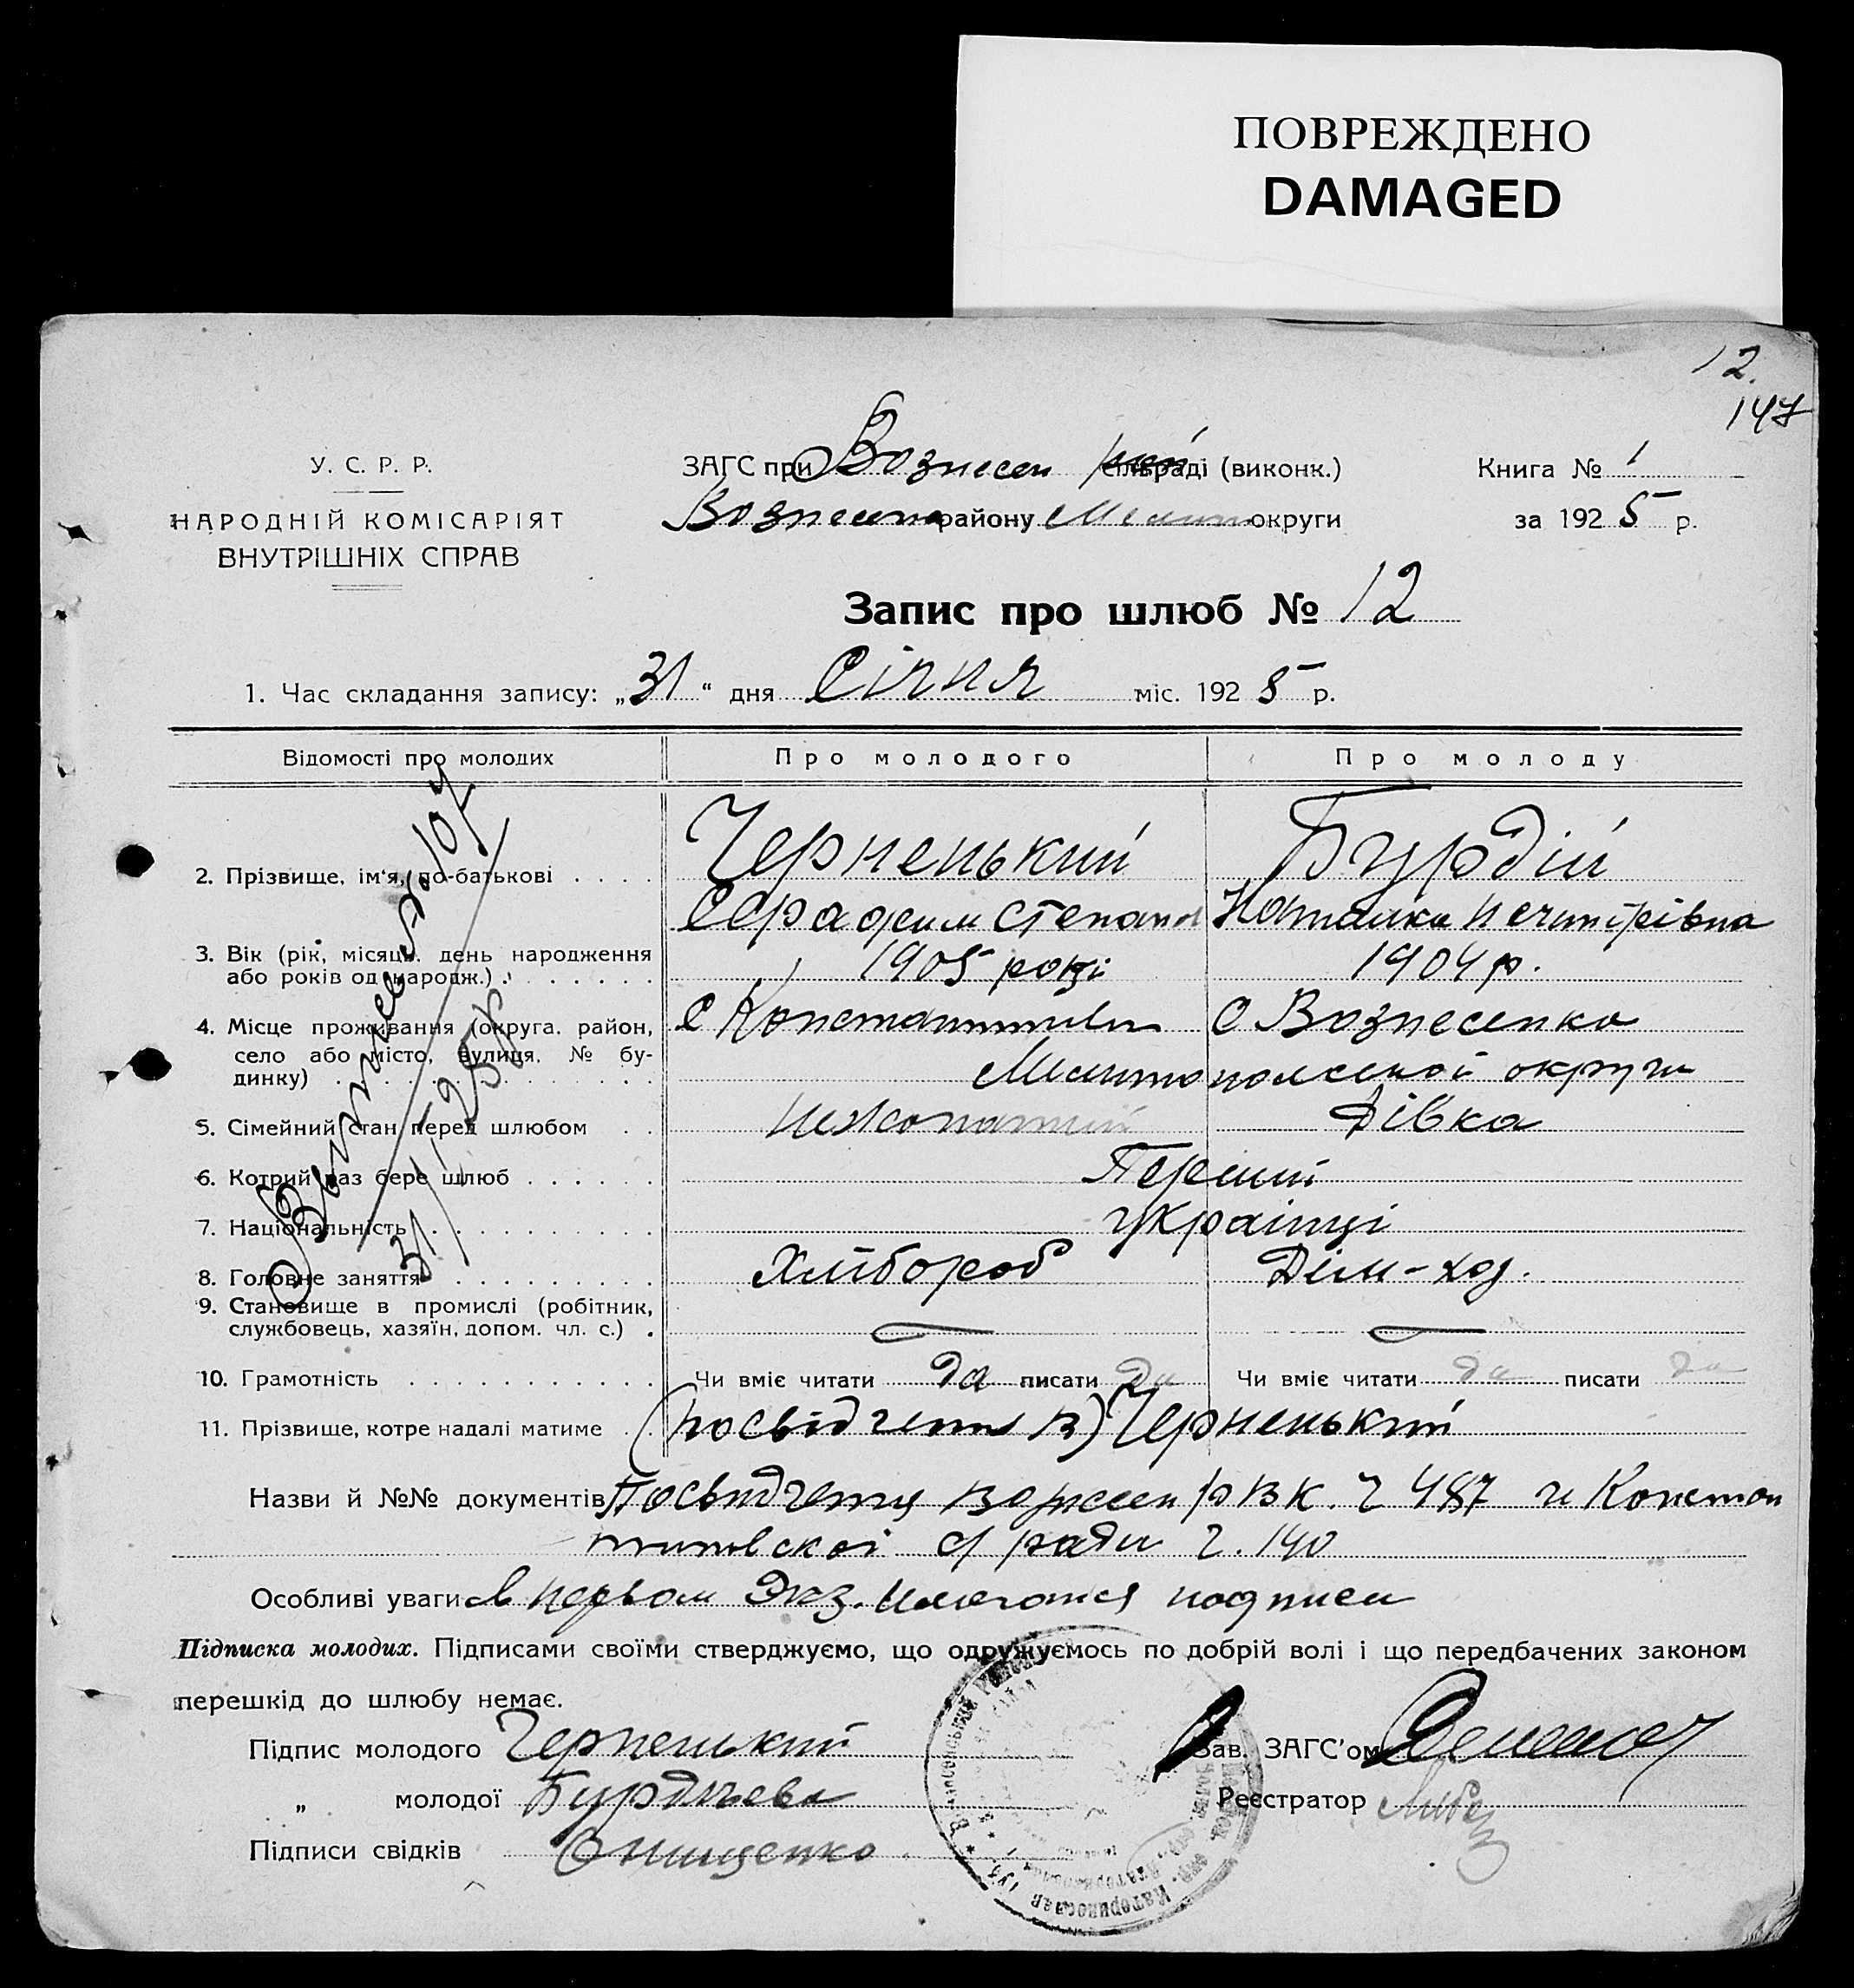 ПОВРЕЖДЕНО
DAMAGED
12.
147
У. С. Р. Р.
НАРОДНІЙ КОМІСАРІЯТ
ВНУТРІШНІХ СПРАВ
ЗАГС при Вознесен сільраді (виконк.)
Вознесен району Мелит округи
Книга № 1
за 1925 р.
Запис про шлюб № 12
1. Час складання запису: „31“ дня Січня міс. 1925 р.
Відомості про молодих
Про молодого
Про молоду
2. Прізвище, ім'я, по-батькові . . . .
Черненький
Серафим Степан
Бурдій
Наталка Нечипрівна
3. Вік (рік, місяць, день народження
або років од народж.) . . . . . . .
1905 році
1904 р.
4. Місце проживання (округа, район,
село або місто, вулиця, № бу-
динку) . . . . . . . . . . . . . . .
С Константинівка
С Вознесенка
Мелитопольской округи
5. Сімейний стан перед шлюбом . .
Нежонатий
Дівка
6. Котрий раз бере шлюб . . . . . .
Перший
7. Національність . . . . . . . . . .
Українці
8. Головне заняття . . . . . . . . .
Хлібороб
Дом-хоз.
9. Становище в промислі (робітник,
службовець, хазяїн, допом. чл. с.) .
10. Грамотність . . . . . . . . . . .
Чи вміє читати да писати да
Чи вміє читати да писати да
11. Прізвище, котре надалі матиме . .
Черненький
№ 107
31/I 25 р
Назви й №№ документів Посвидченя РВК. ч 487 и Констан
тиновскоі с/ ради ч. 140
Особливі уваги в первом Экз. имеются подписи
Підписка молодих. Підписами своїми стверджуємо, що одружуємось по добрій волі і що передбачених законом
перешкід до шлюбу немає.
Підпис молодого Черненький
„ молодої Бурдъева
Підписи свідків Онищенко
Зав. ЗАГС'ом
Реєстратор